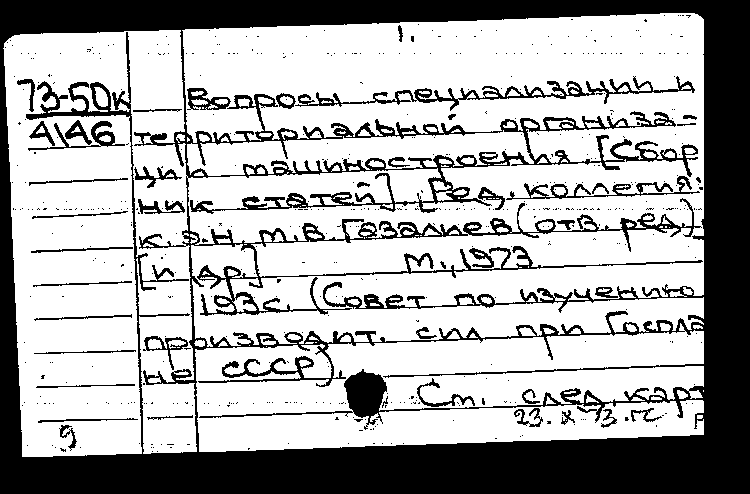 1.
73-50к Вопросы специализации и
4146 территориальной организа-
ции машиностроения. [Сбор
ник статей]. [Ред. коллегия:
к.э.н. М.В. Газалиев (отв. ред.)
[и др.]. М., 1973.
193с. (Совет по изучению
производит. сил при Госпла
не СССР).
См. след. карт
23.X 73.гс
9